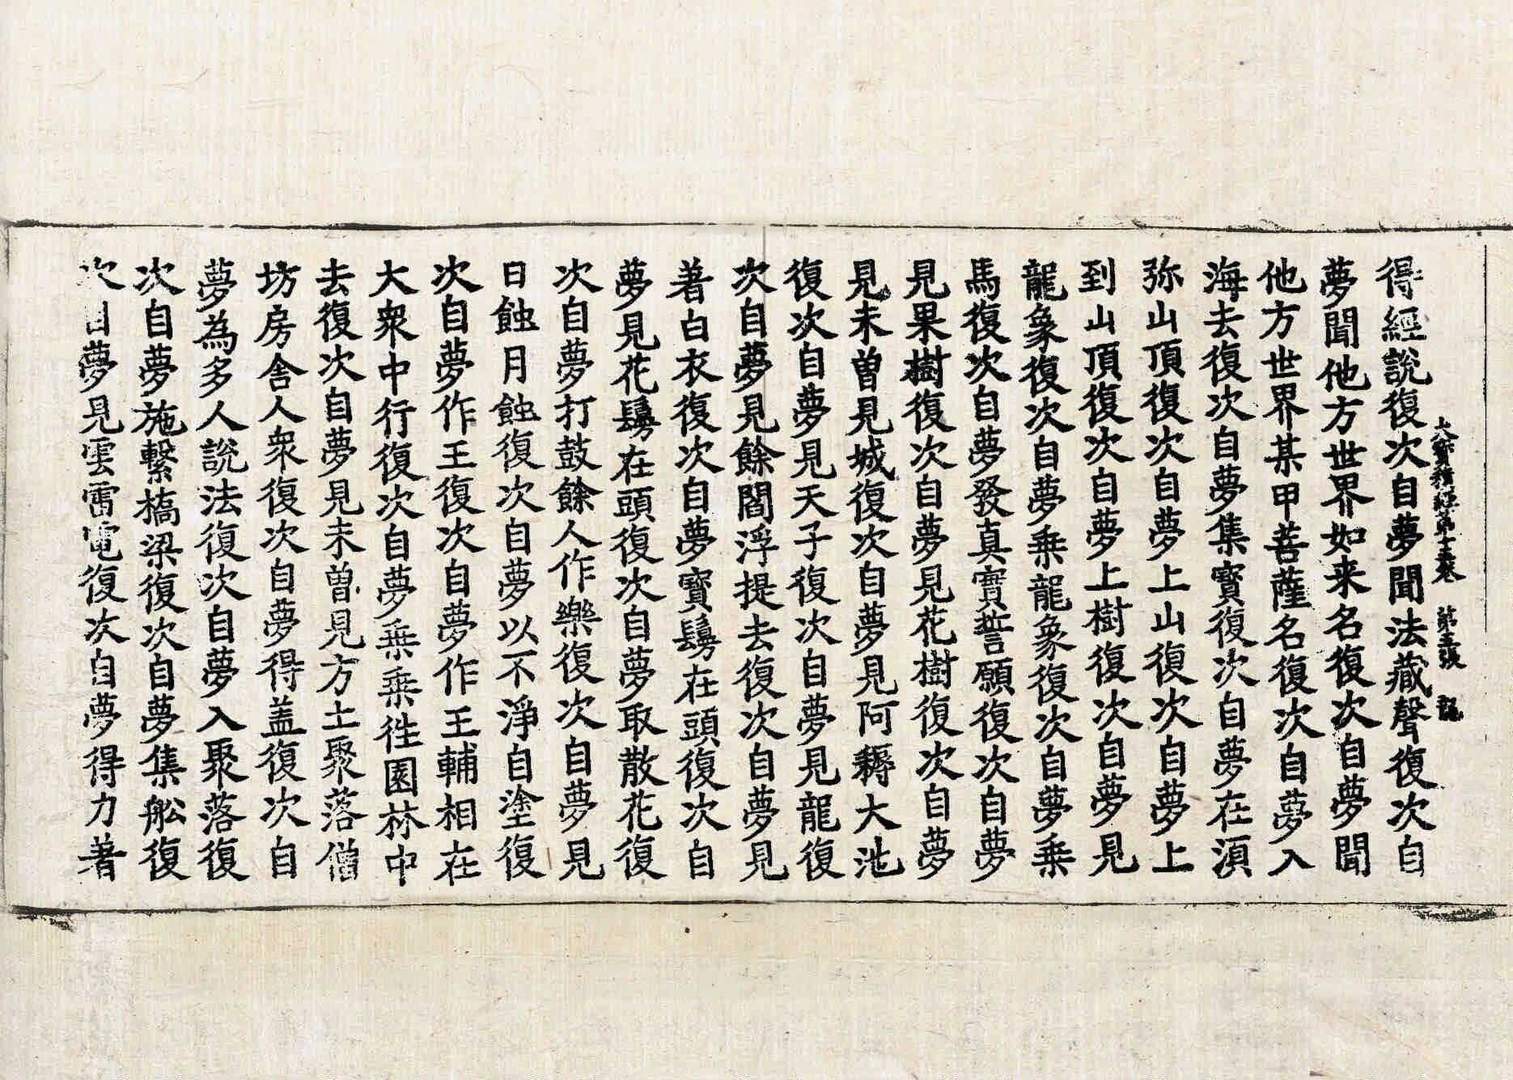 大寶積經第十五卷 第五張 龍
得經說復次自夢聞法藏聲復次自
夢聞他方世界如来名復次自夢聞
他方世界某甲菩薩名復次自夢入
海去復次自夢集寶復次自夢在湏
弥山頂復次自夢上山復次自夢上
到山頂復次自夢上樹復次自夢見
龍象復次自夢乘龍象復次自夢乘
馬復次自夢發真實誓願復次自夢
見果樹復次自夢見花樹復次自夢
見未曽見城復次自夢見阿耨大池
復次自夢見天子復次自夢見龍復
次自夢見餘閻浮提去復次自夢見
著白衣復次自夢寶鬘在頭復次自
夢見花鬘在頭復次自夢取散花復
次自夢打鼓餘人作樂復次自夢見
日蝕月蝕復次自夢以不淨自塗復
次自夢作王復次自夢作王輔相在
大衆中行復次自夢乘乘徃園林中
去復次自夢見未曽見方土聚落僧
坊房舍人衆復次自夢得盖復次自
夢為多人說法復次自夢入聚落復
次自夢施繫橋梁復次自夢集舩復
次自夢見雲雷電復次自夢得力著